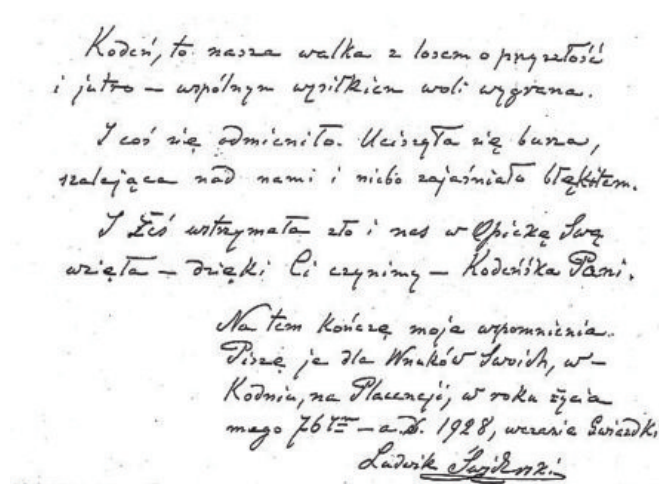 Kodeń, to nasza walka z losem o przyszłość
i jutro – wspólnym wysiłkiem woli wygrana.
I coś się odmieniło. Uciszyła się burza,
szalejąca nad nami i niebo zajaśniało błękitem.
I Żeś wstrzymała zło i nas w Opiekę Swą
wzięła – dzięki Ci czynimy – Kodeńska Pani.
Na tem kończę moje wspomnienia.
Piszę je dla Wnuków Swoich, w-
Kodniu, na Placencji, w roku życia
mego 76 tym – a.D. 1928, wczasie Gwiazdki
Ludwik